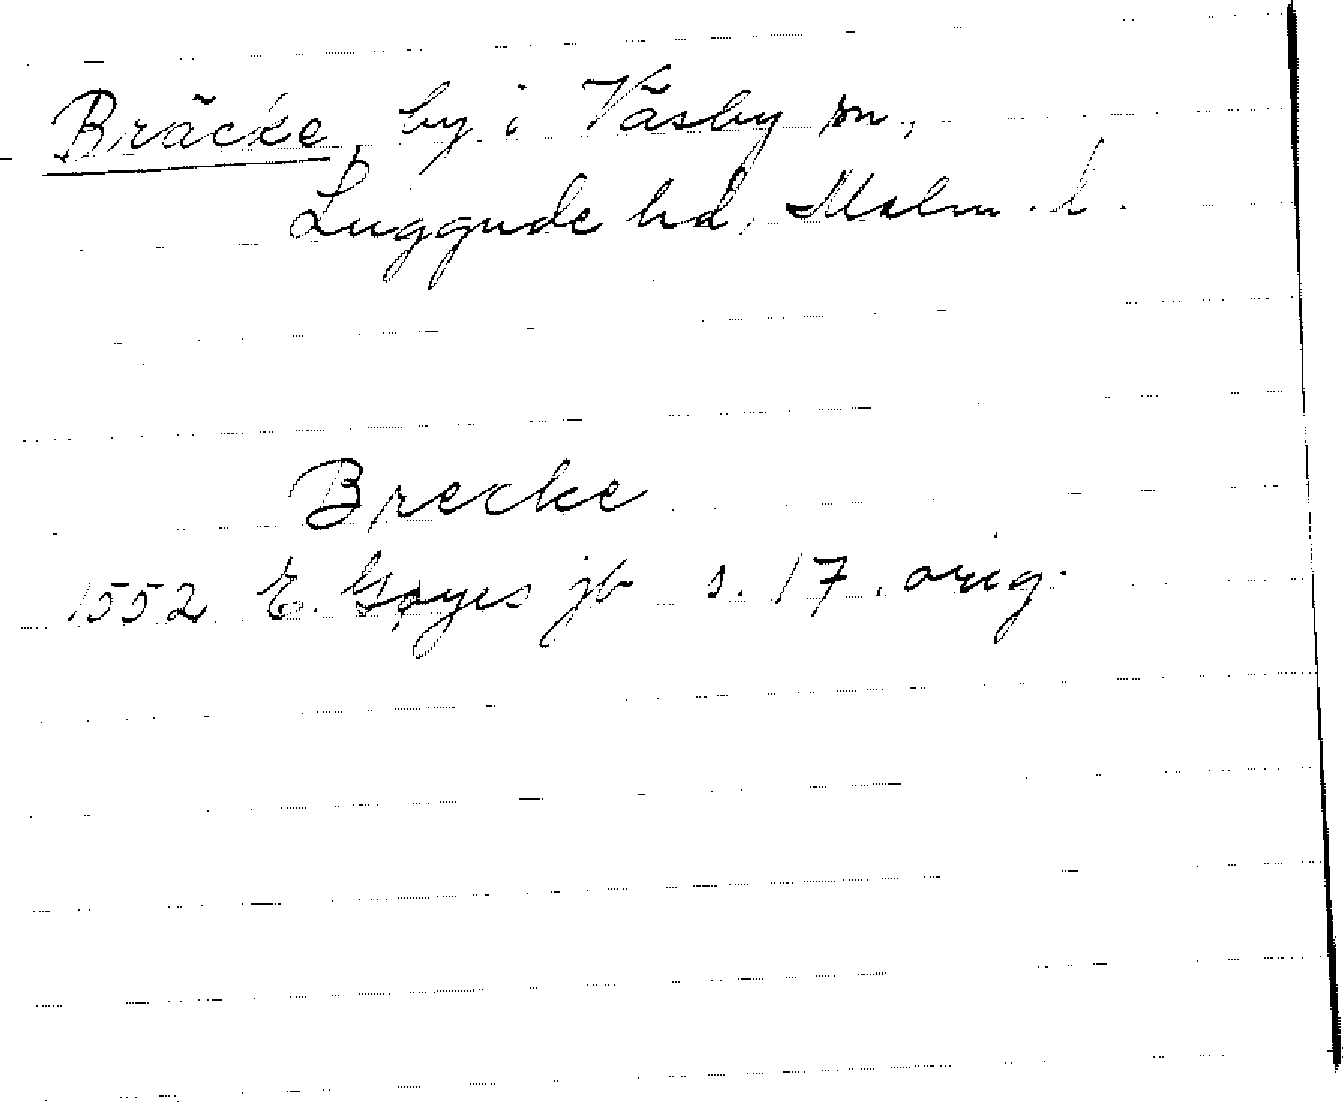 Bräcke by i Väsby sn,
Luggude hd, Malm. l.
Brecke
1552 E. Gøyes jb s. 17. orig.